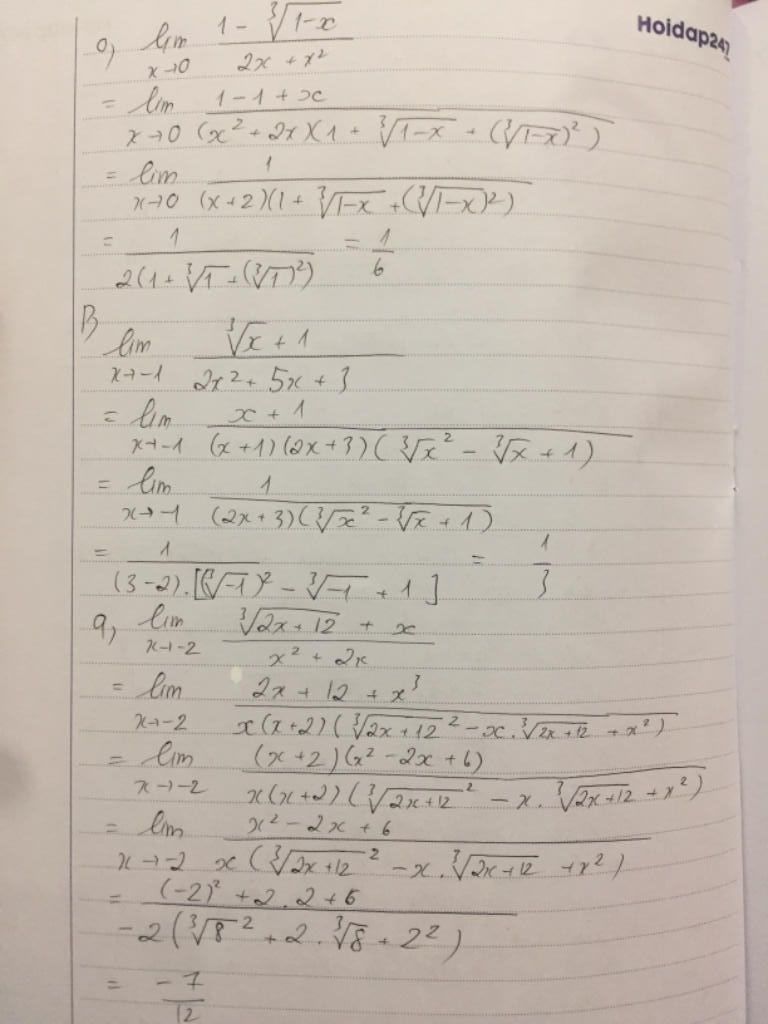 Hoidap247
o, lim x→0 (1 - ∛(1-x)) / (2x + x²)
= lim x→0 (1 - 1 + x) / ((x² + 2x)(1 + ∛(1-x) + (∛(1-x))²))
= lim x→0 1 / ((x+2)(1 + ∛(1-x) + (∛(1-x))²))
= 1 / (2(1 + ∛1 + (∛1)²)) = 1/6
P, lim x→-1 (∛x + 1) / (2x² + 5x + 3)
= lim x→-1 (x + 1) / ((x+1)(2x+3)(∛x² - ∛x + 1))
= lim x→-1 1 / ((2x+3)(∛x² - ∛x + 1))
= 1 / ((3-2).[(∛-1)² - ∛-1 + 1]) = 1/3
q, lim x→-2 (∛(2x+12) + x) / (x² + 2x)
= lim x→-2 (2x + 12 + x³) / (x(x+2)(∛(2x+12)² - x.∛(2x+12) + x²))
= lim x→-2 (x+2)(x² - 2x + 6) / (x(x+2)(∛(2x+12)² - x.∛(2x+12) + x²))
= lim x→-2 (x² - 2x + 6) / (x(∛(2x+12)² - x.∛(2x+12) + x²))
= ((-2)² + 2.2 + 6) / (-2(∛8² + 2.∛8 + 2²))
= -7/12